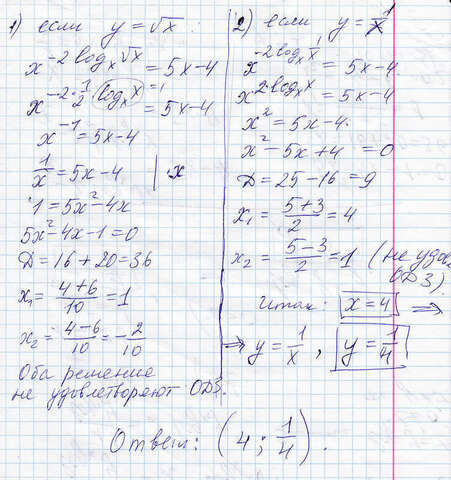 1) если y = √x :
x^(-2log_x √x) = 5x-4
x^(-2·1/2·log_x x) = 5x-4
=1
x^(-1) = 5x-4
1/x = 5x-4 | ·x
1 = 5x²-4x
5x²-4x-1=0
D = 16+20=36
x₁ = (4+6)/10 = 1
x₂ = (4-6)/10 = -2/10
Оба решение
не удовлетворяют ОДЗ.
2) если y = x^(-1)
x^(-2log_x x^(-1)) = 5x-4.
x^(2·log_x x) = 5x-4
x² = 5x-4.
x²-5x+4 = 0
D = 25-16=9
x₁ = (5+3)/2 = 4
x₂ = (5-3)/2 = 1 (не удов
ОДЗ).
Итак: x = 4 ⇒
⇒ y = 1/x , y = 1/4
Ответ: (4 ; 1/4).